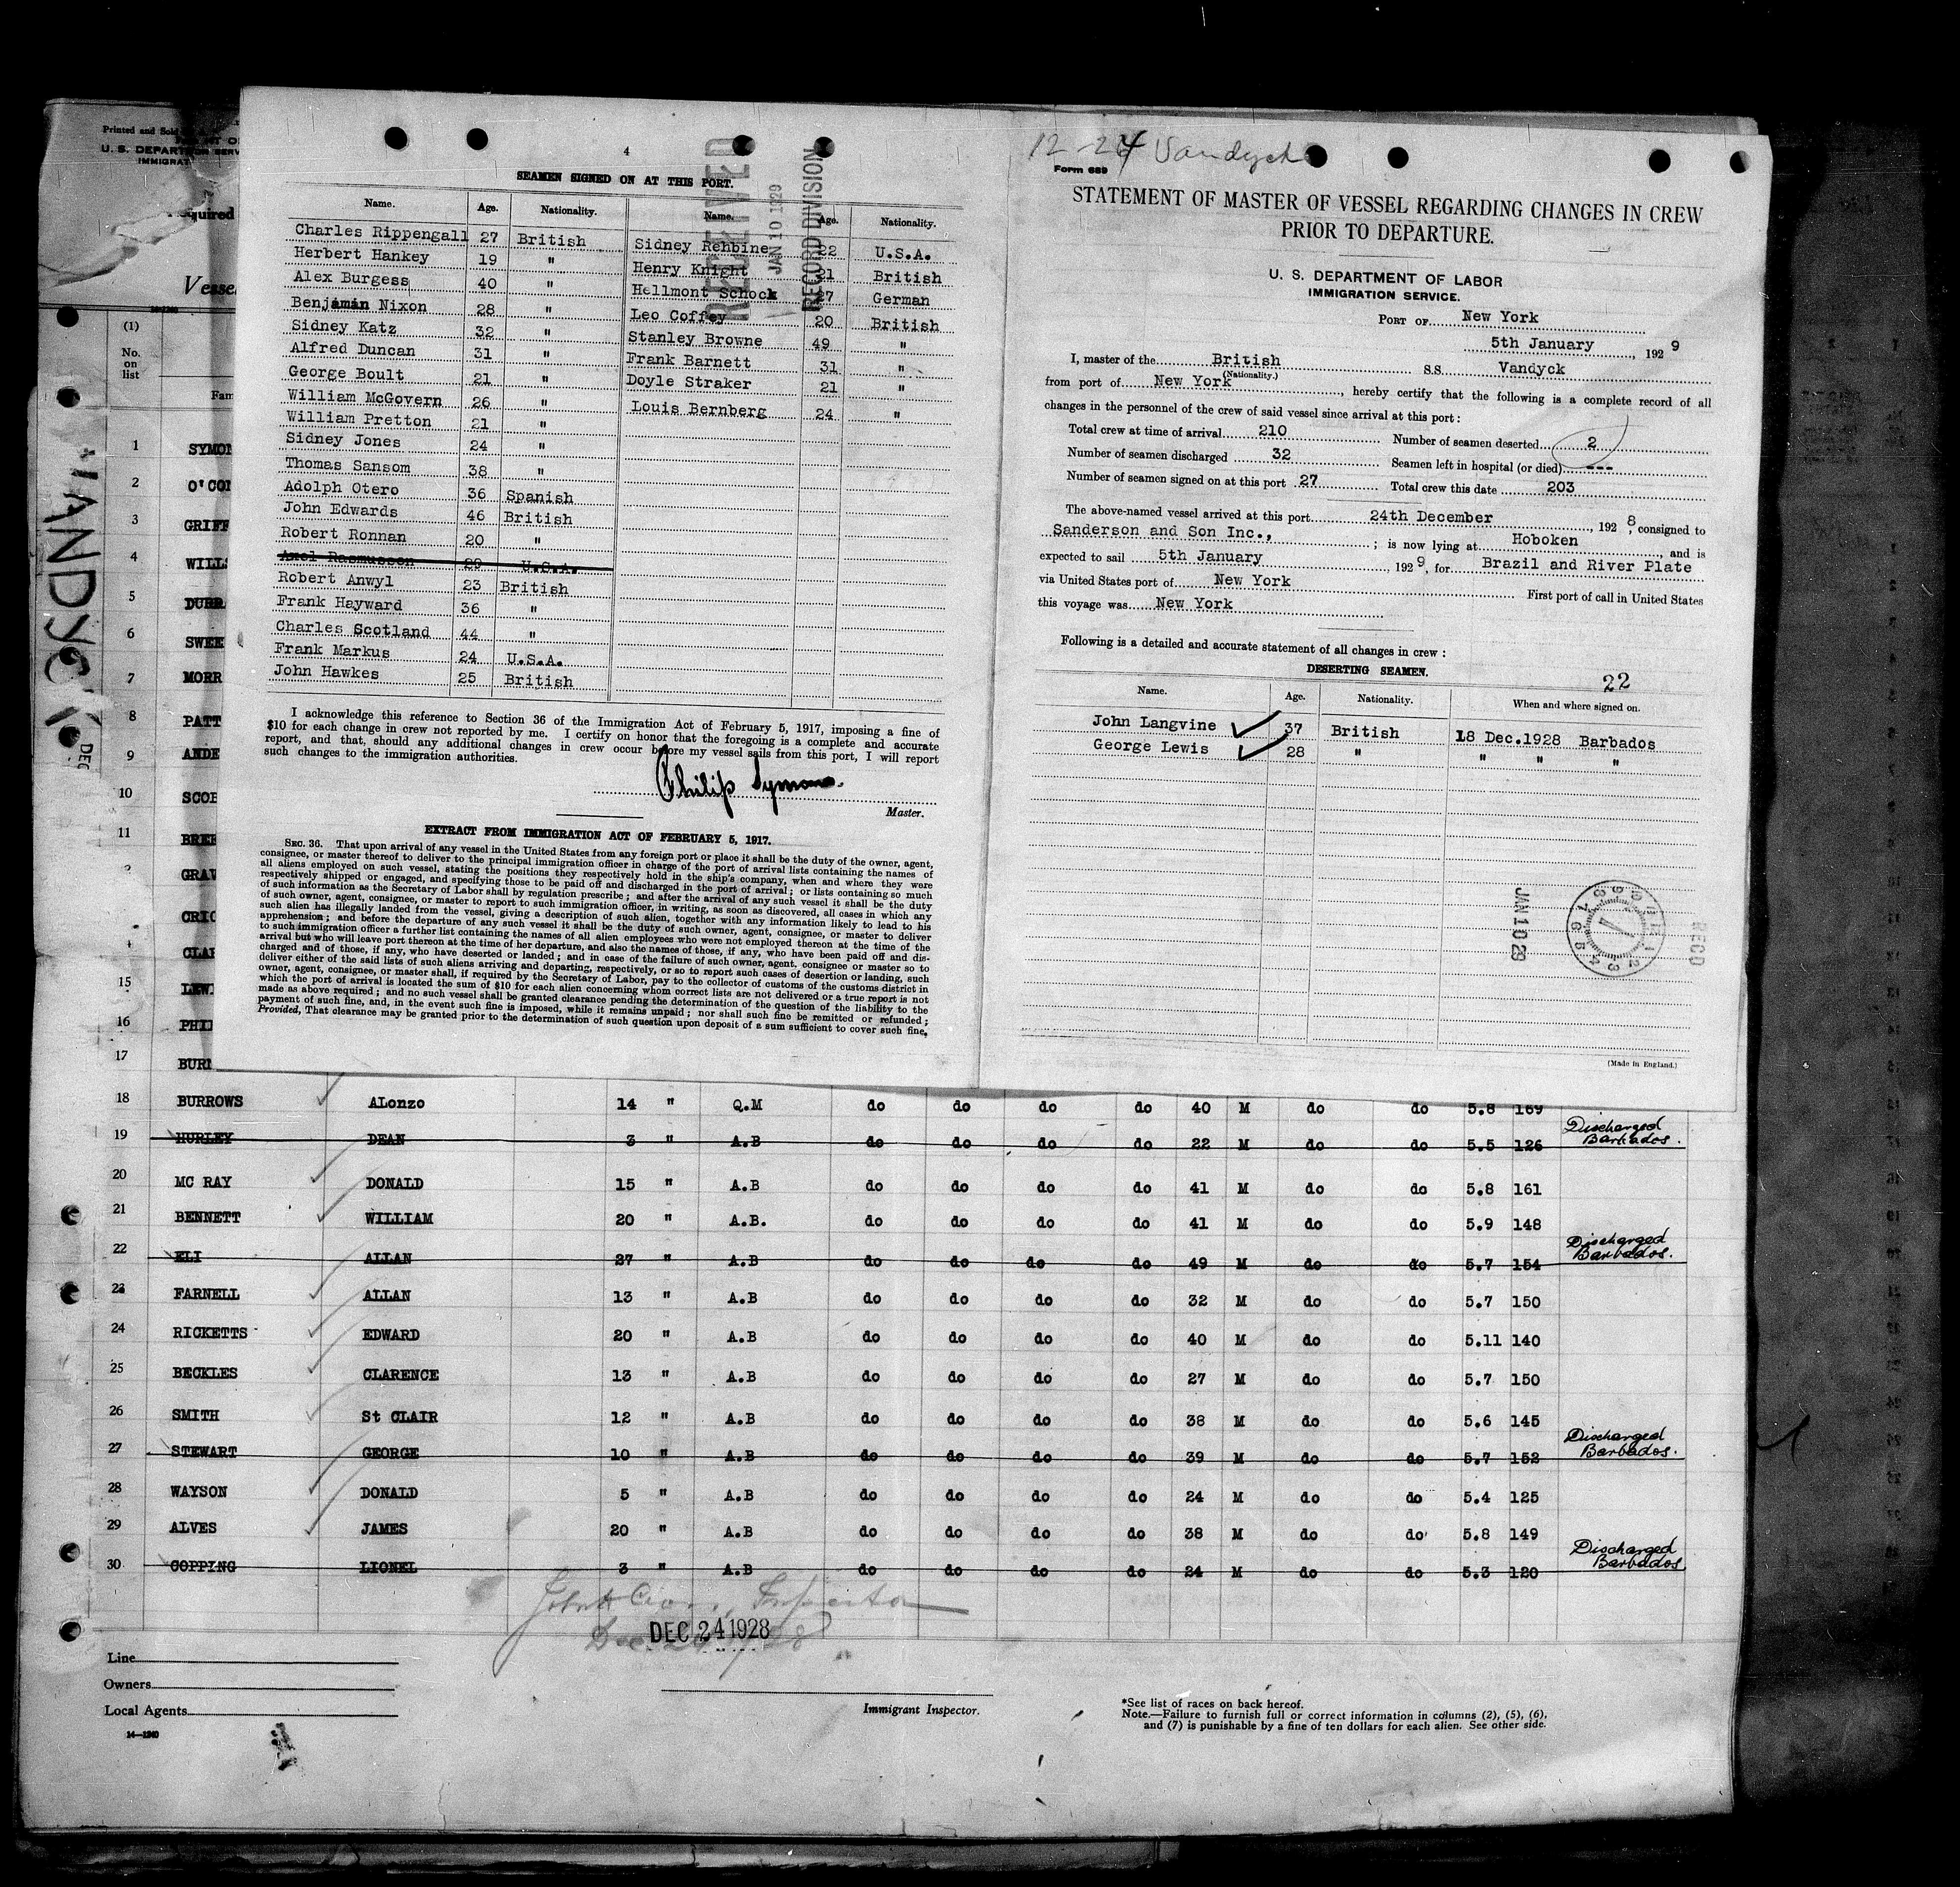 4
SEAMEN SIGNED ON AT THIS PORT.
Name. Age. Nationality. Name. Age. Nationality.
Charles Rippengall 27 British
Herbert Hankey 19 "
Alex Burgess 40 "
Benjamin Nixon 28 "
Sidney Katz 32 "
Alfred Duncan 31 "
George Boult 21 "
William McGovern 26 "
William Pretton 21 "
Sidney Jones 24 "
Thomas Sansom 38 "
Adolph Otero 36 Spanish
John Edwards 46 British
Robert Ronnan 20 "
Axel Rasmussen 29 U.S.A.
Robert Anwyl 23 British
Frank Hayward 36 "
Charles Scotland 44 "
Frank Markus 24 U.S.A.
John Hawkes 25 British
Sidney Rehbine 22 U.S.A.
Henry Knight 21 British
Hellmont Schock 27 German
Leo Coffey 20 British
Stanley Browne 49 "
Frank Barnett 31 "
Doyle Straker 21 "
Louis Bernberg 24 "
RECEIVED
JAN 10 1929
RECORD DIVISION
I acknowledge this reference to Section 36 of the Immigration Act of February 5, 1917, imposing a fine of
$10 for each change in crew not reported by me. I certify on honor that the foregoing is a complete and accurate
report, and that, should any additional changes in crew occur before my vessel sails from this port, I will report
such changes to the immigration authorities.
Philip Symons
Master.
EXTRACT FROM IMMIGRATION ACT OF FEBRUARY 5, 1917.
SEC. 36. That upon arrival of any vessel in the United States from any foreign port or place it shall be the duty of the owner, agent,
consignee, or master thereof to deliver to the principal immigration officer in charge of the port of arrival lists containing the names of
all aliens employed on such vessel, stating the positions they respectively hold in the ship's company, when and where they were
respectively shipped or engaged, and specifying those to be paid off and discharged in the port of arrival; or lists containing so much
of such information as the Secretary of Labor shall by regulation prescribe; and after the arrival of any such vessel it shall be the duty
of such owner, agent, consignee, or master to report to such immigration officer, in writing, as soon as discovered, all cases in which any
such alien has illegally landed from the vessel, giving a description of such alien, together with any information likely to lead to his
apprehension; and before the departure of any such vessel it shall be the duty of such owner, agent, consignee, or master to deliver
to such immigration officer a further list containing the names of all alien employees who were not employed thereon at the time of the
arrival but who will leave port thereon at the time of her departure, and also the names of those, if any, who have been paid off and dis-
charged and of those, if any, who have deserted or landed; and in case of the failure of such owner, agent. consignee or master so to
deliver either of the said lists of such aliens arriving and departing, respectively, or so to report such cases of desertion or landing, such
owner, agent, consignee, or master shall, if required by the Secretary of Labor, pay to the collector of customs of the customs district in
which the port of arrival is located the sum of $10 for each alien concerning whom correct lists are not delivered or a true report is not
made as above required; and no such vessel shall be granted clearance pending the determination of the question of the liability to the
payment of such fine, and, in the event such fine is imposed, while it remains unpaid; nor shall such fine be remitted or refunded;
Provided, That clearance may be granted prior to the determination of such question upon deposit of a sum sufficient to cover such fine.
12-24 Vandyck
Form 689
STATEMENT OF MASTER OF VESSEL REGARDING CHANGES IN CREW
PRIOR TO DEPARTURE.
U. S. DEPARTMENT OF LABOR
IMMIGRATION SERVICE.
PORT OF New York
5th January, 1929
I, master of the British S.S. Vandyck
(Nationality.)
from port of New York, hereby certify that the following is a complete record of all
changes in the personnel of the crew of said vessel since arrival at this port:
Total crew at time of arrival 210 Number of seamen deserted 2
Number of seamen discharged 32 Seamen left in hospital (or died) ---
Number of seamen signed on at this port 27 Total crew this date 203
The above-named vessel arrived at this port 24th December, 1928, consigned to
Sanderson and Son Inc., ; is now lying at Hoboken, and is
expected to sail 5th January, 1929, for Brazil and River Plate
via United States port of New York First port of call in United States
this voyage was New York
Following is a detailed and accurate statement of all changes in crew:
DESERTING SEAMEN.
22
Name. Age. Nationality. When and where signed on.
John Langvine 37 British 18 Dec.1928 Barbados
George Lewis 28 " " " "
JAN 10 29
RECD
(Made in England.)
Printed and Sold
U. S. DEPART
IMMIGRAT
equired
Vesse
(1)
No.
on
list
Fam
VANDYCK
DEC
1 SYMON
2 O'CON
3 GRIFF
4 WILLS
5 DURR
6 SWEE
7 MORR
8 PATT
9 ANDE
10 SCOB
11 BRER
GRAV
CRIC
CLAR
15 LEWI
16 PHIL
17 BURN
18 BURROWS ALonzo 14 " Q.M do do do do 40 M do do 5.8 169
19 HURLEY DEAN 3 " A.B do do do do 22 M do do 5.5 126 Discharged Barbados.
20 MC RAY DONALD 15 " A.B do do do do 41 M do do 5.8 161
21 BENNETT WILLIAM 20 " A.B. do do do do 41 M do do 5.9 148
22 ELI ALLAN 27 " A.B do do do do 49 M do do 5.7 154 Discharged Barbados.
23 FARNELL ALLAN 13 " A.B do do do do 32 M do do 5.7 150
24 RICKETTS EDWARD 20 " A.B do do do do 40 M do do 5.11 140
25 BECKLES CLARENCE 13 " A.B do do do do 27 M do do 5.7 150
26 SMITH St CLAIR 12 " A.B do do do do 38 M do do 5.6 145
27 STEWART GEORGE 10 " A.B do do do do 39 M do do 5.7 152 Discharged Barbados.
28 WAYSON DONALD 5 " A.B do do do do 24 M do do 5.4 125
29 ALVES JAMES 20 " A.B do do do do 38 M do do 5.8 149
30 COPPING LIONEL 3 " A.B do do do do 24 M do do 5.3 120 Discharged Barbados
Inspector
DEC 24 1928
Line
Owners
Local Agents
14—1240
Immigrant Inspector.
*See list of races on back hereof.
Note.—Failure to furnish full or correct information in columns (2), (5), (6),
and (7) is punishable by a fine of ten dollars for each alien. See other side.